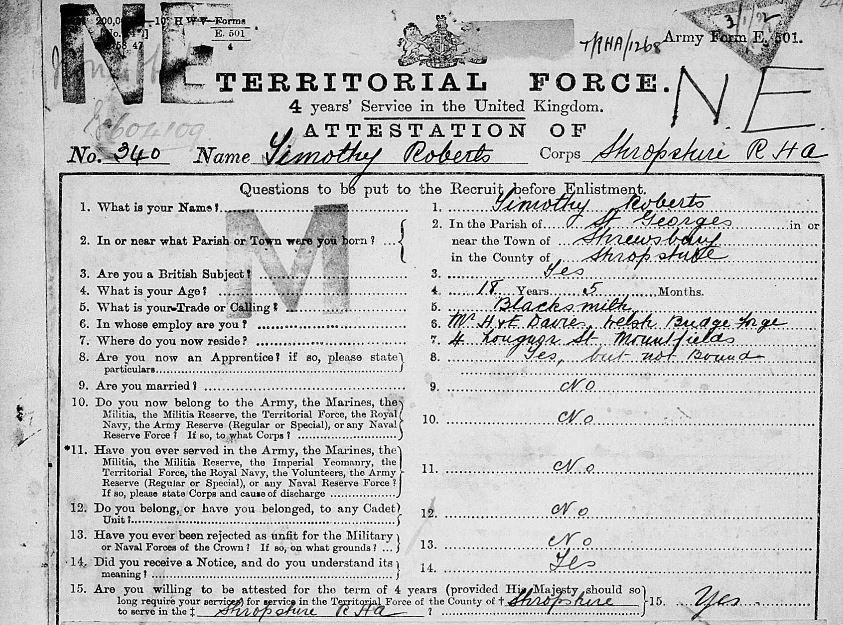 NE
200,000 10 H W V Forms
E. 501
4
T/RHA/1268
Army Form E. 501.
TERRITORIAL FORCE.
N.E.
4 years' Service in the United Kingdom.
ATTESTATION OF
No. 340 Name Timothy Roberts Corps Shropshire R H A
Questions to be put to the Recruit before Enlistment.
1. What is your Name? 1. Timothy Roberts
2. In or near what Parish or Town were you born? ... 2. In the Parish of St Georges in or
near the Town of Shrewsbury
in the County of Shropshire
M
3. Are you a British Subject? 3. Yes
4. What is your Age? 4. 18 Years 5 Months.
5. What is your Trade or Calling? 5. Blacksmith
6. In whose employ are you? 6. Mr H & E Davies, Welsh Bridge Forge
7. Where do you now reside? 7. 4 Longnor St. Mountfields
8. Are you now an Apprentice? if so, please state
particulars 8. Yes, but not Bound
9. Are you married? 9. No
10. Do you now belong to the Army, the Marines, the
Militia, the Militia Reserve, the Territorial Force, the Royal
Navy, the Army Reserve (Regular or Special), or any Naval
Reserve Force? If so, to what Corps? 10. No
*11. Have you ever served in the Army, the Marines, the
Militia, the Militia Reserve, the Imperial Yeomanry, the
Territorial Force, the Royal Navy, the Volunteers, the Army
Reserve (Regular or Special), or any Naval Reserve Force?
If so, please state Corps and cause of discharge 11. No
12. Do you belong, or have you belonged, to any Cadet
Unit? 12. No
13. Have you ever been rejected as unfit for the Military
or Naval Forces of the Crown? If so, on what grounds? ... 13. No
14. Did you receive a Notice, and do you understand its
meaning? 14. Yes
15. Are you willing to be attested for the term of 4 years (provided His Majesty should so
long require your services) for service in the Territorial Force of the County of † Shropshire 15. Yes
to serve in the ‡ Shropshire R H A ?